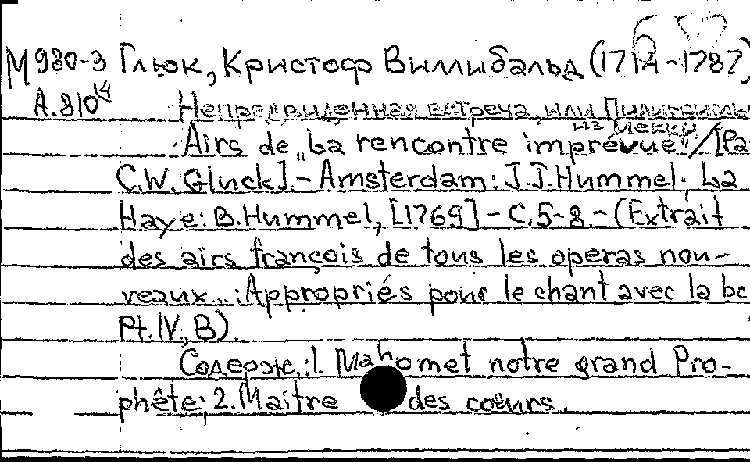 М980-3 Глюк, Кристоф Виллибальд (1714-1787)
А.810
Непредвиденная встреча, или Пилигримы
из Мекки
Airs de „La rencontre imprévue"/[Pa
C.W. Gluck]. - Amsterdam: J.J. Hummel. La
Haye: B. Hummel, [1769] - C. 5-8 - (Extrait
des airs françois de tous les operas nou-
veaux...: Appropriés pour le chant avec la bc
Pt. IV, B).
Содерж.: 1. Mahomet notre grand Pro-
phête; 2. Maitre des cœurs.